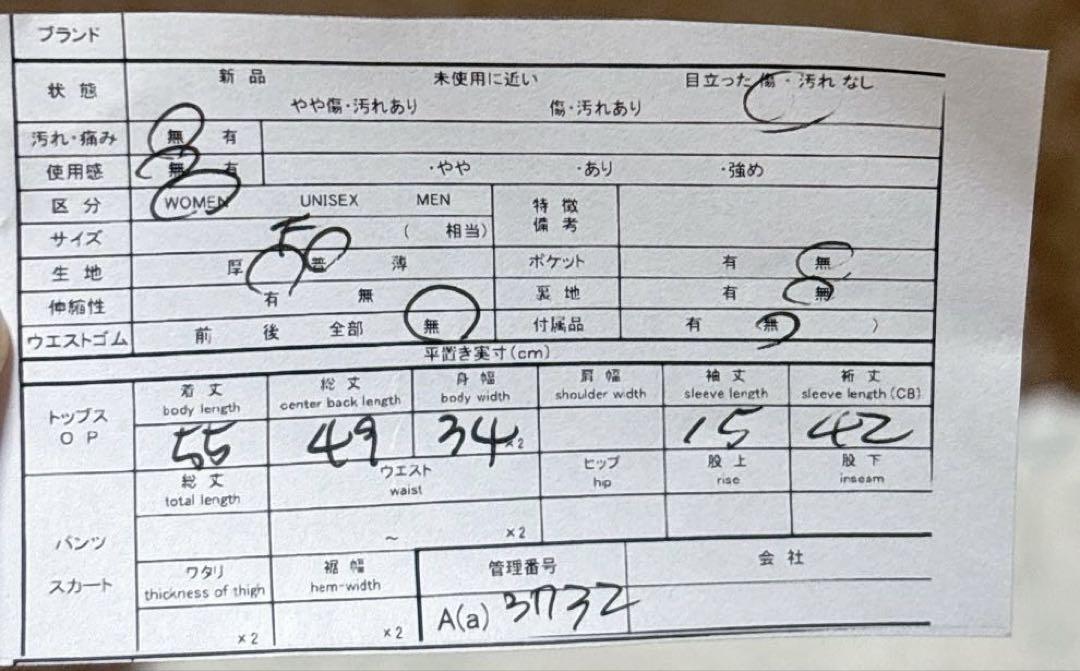 ブランド
状態 新品 未使用に近い 目立った傷・汚れなし
やや傷・汚れあり 傷・汚れあり
汚れ・痛み 無 有
使用感 無 有 ・やや ・あり ・強め
区分 WOMEN UNISEX MEN 特徴
備考
サイズ F ( 相当)
生地 厚 普 薄 ポケット 有 無
伸縮性 有 無 裏地 有 無
ウエストゴム 前 後 全部 無 付属品 有 無 )
平置き実寸(cm)
トップス
OP
着丈 総丈 身幅 肩幅 袖丈 裄丈
body length center back length body width shoulder width sleeve length sleeve length (CB)
55 49 34 ×2 15 42
パンツ
スカート
総丈 ウエスト ヒップ 股上 股下
total length waist hip rise inseam
~ ×2
ワタリ 裾幅 管理番号 会社
thickness of thigh hem-width
×2 ×2 A(a) 3732